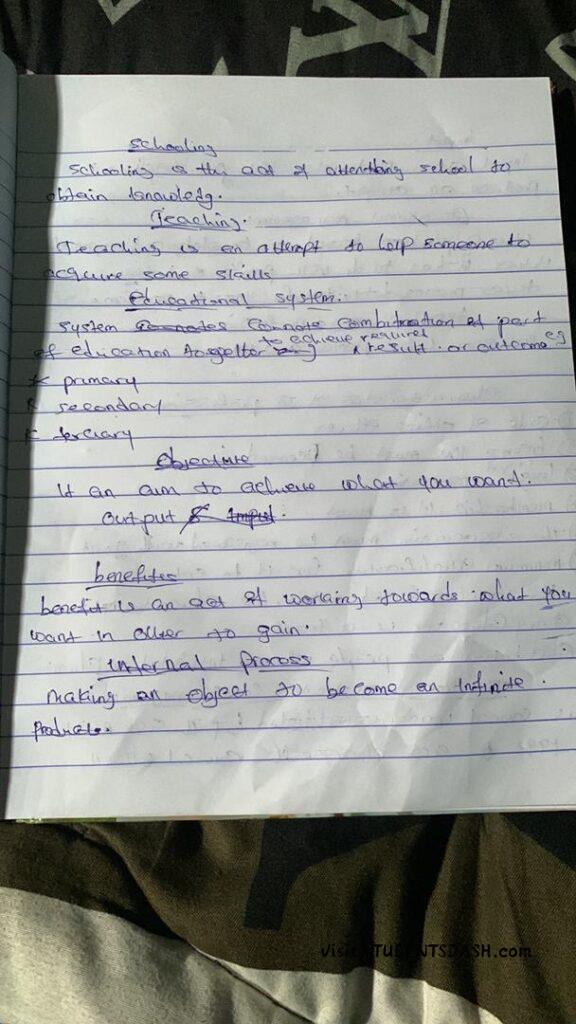 Schooling
Schooling is the act of attending school to
obtain knowledg.
Teaching.
Teaching is an attempt to help someone to
acquire some skills
Educational system.
System connotes connote combination of part
to achieve required
of education together result or outcome eg
* primary
* secondary
* tertiary
Objective
It an aim to achieve what you want.
Output & Input.
benefites
benefit is an act of working towards what you
want in other to gain.
internal process
Making an object to become an infinite
products.
visit STUDENTSDASH.com